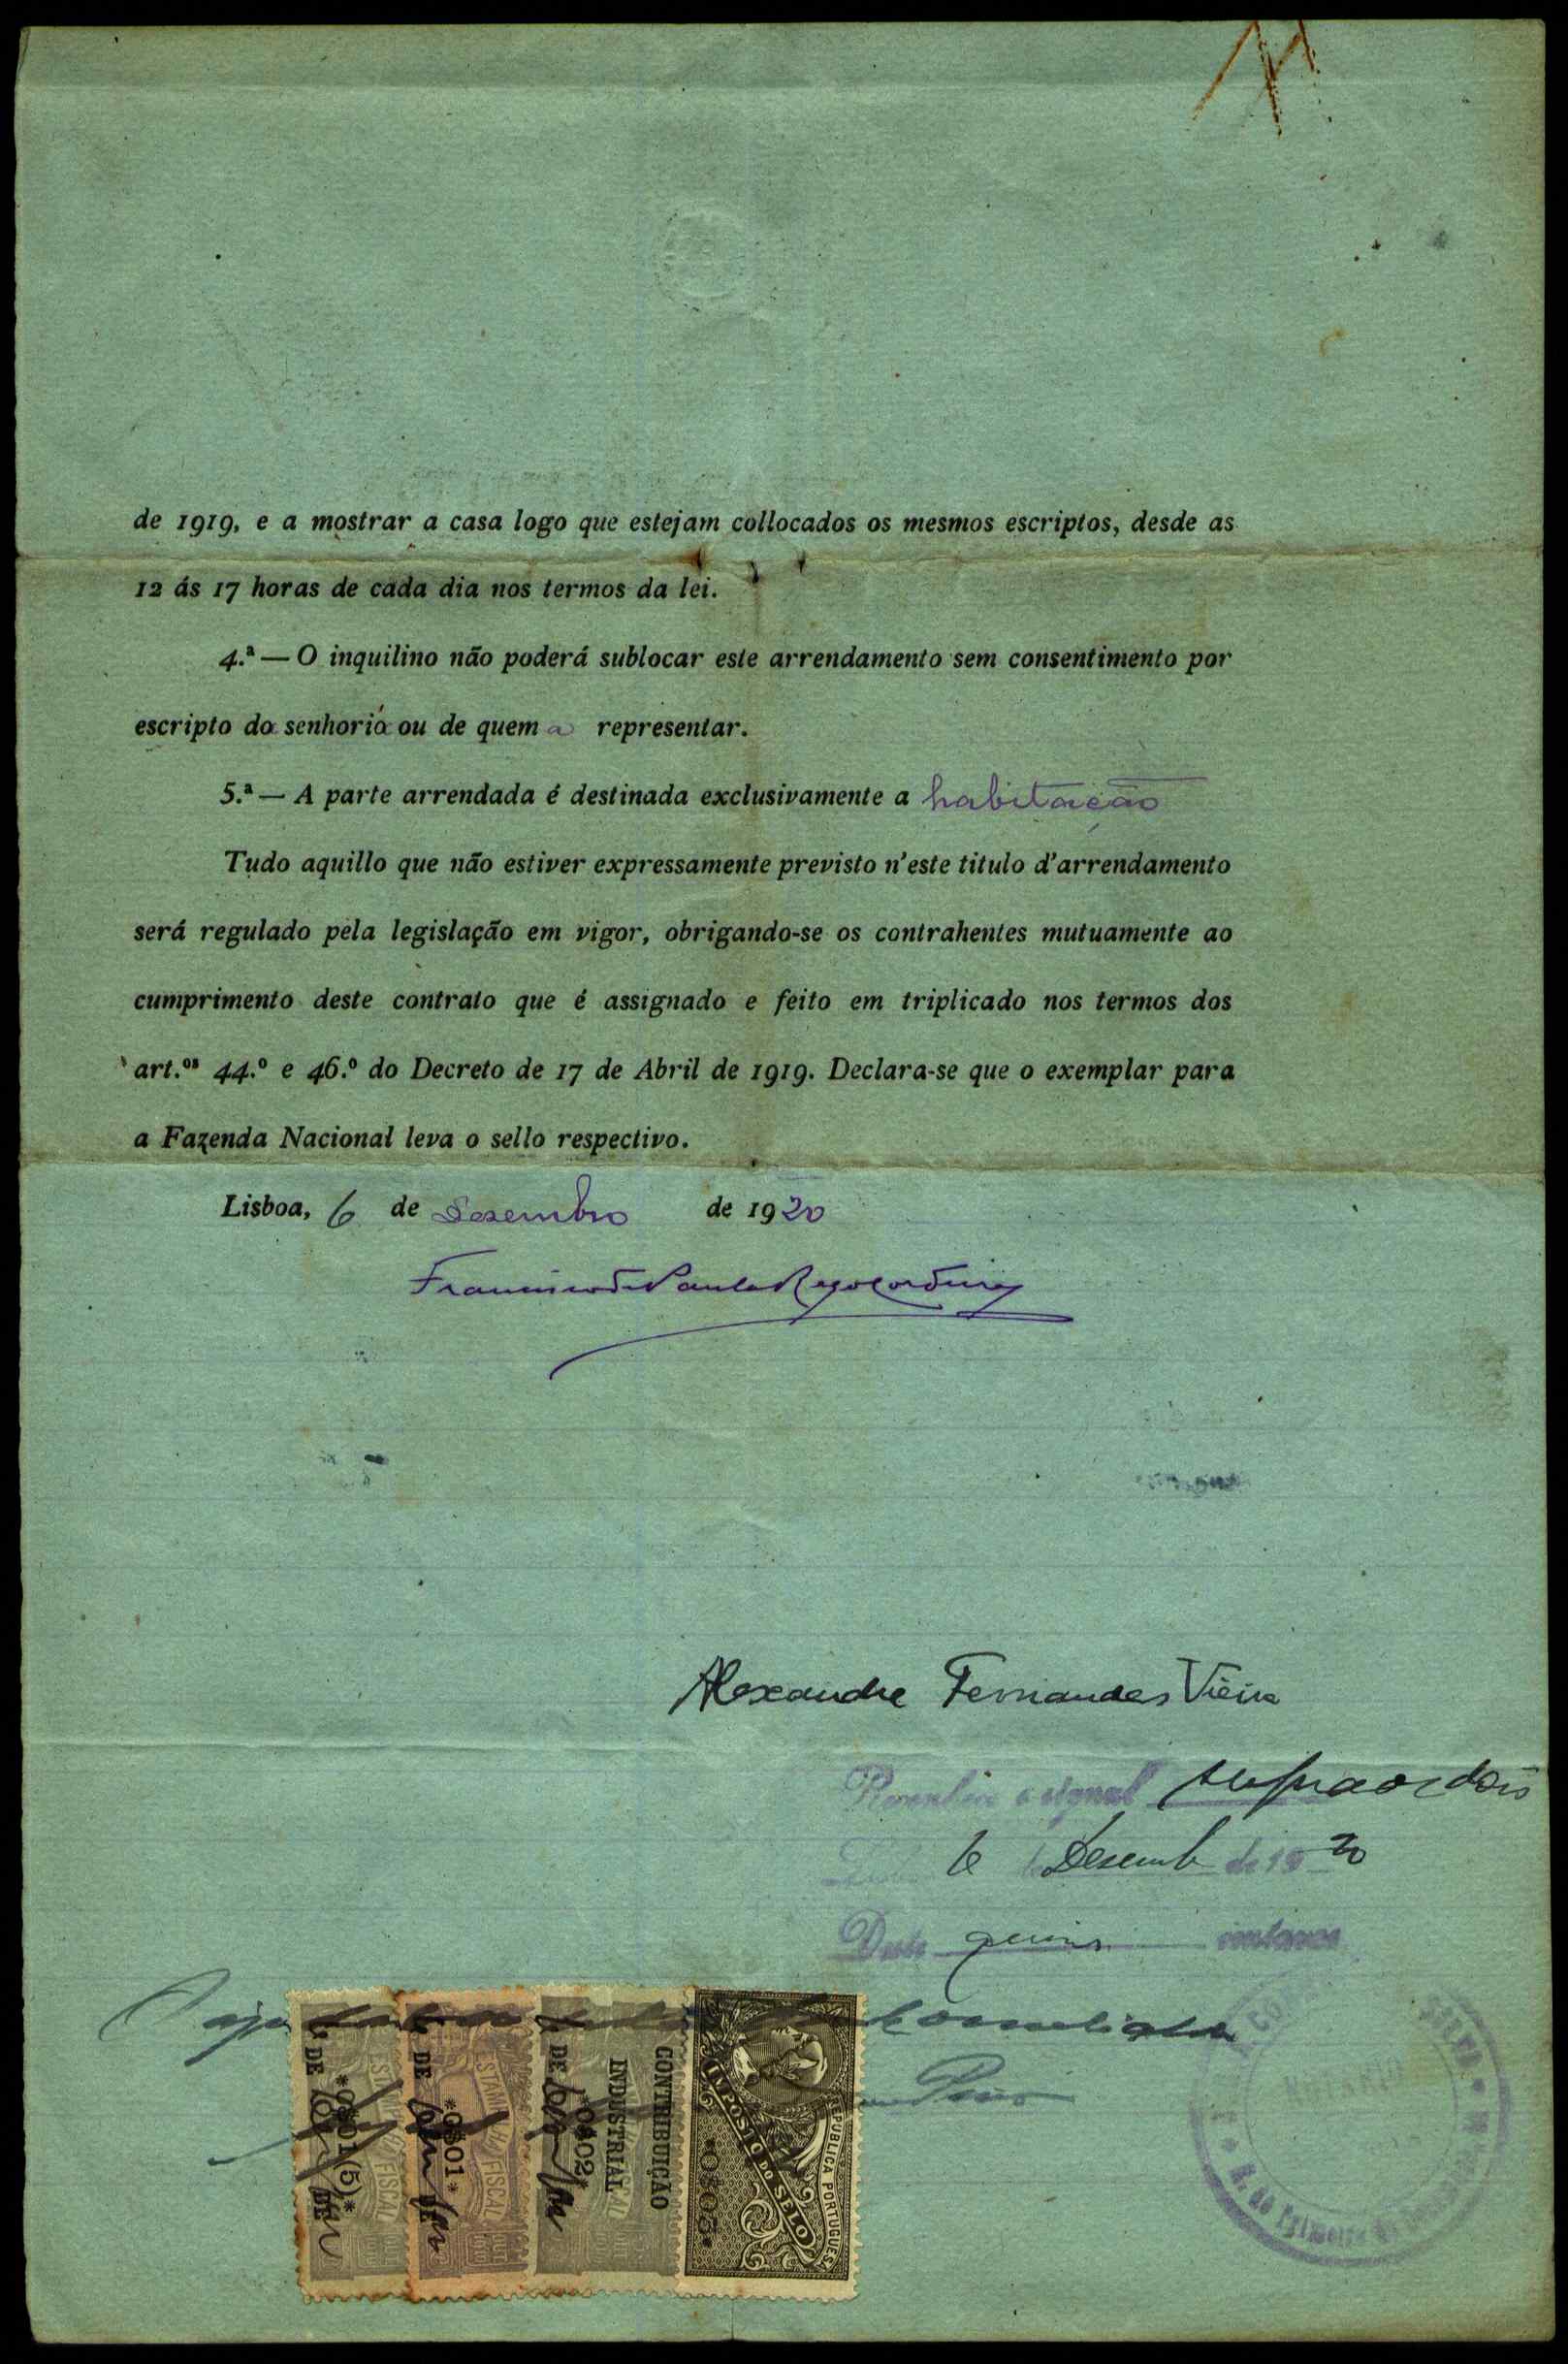 de 1919, e a mostrar a casa logo que estejam collocados os mesmos escriptos, desde as
12 ás 17 horas de cada dia nos termos da lei.
4.ª — O inquilino não poderá sublocar este arrendamento sem consentimento por
escripto da senhoria ou de quem a representar.
5.ª — A parte arrendada é destinada exclusivamente a habitação
Tudo aquillo que não estiver expressamente previsto n'este titulo d'arrendamento
será regulado pela legislação em vigor, obrigando-se os contrahentes mutuamente ao
cumprimento deste contrato que é assignado e feito em triplicado nos termos dos
art.ᵒˢ 44.º e 46.º do Decreto de 17 de Abril de 1919. Declara-se que o exemplar para
a Fazenda Nacional leva o sello respectivo.
Lisboa, 6 de Desembro de 1920
Francisco de Paula Rego Cordeiro
Alexandre Fernandes Vieira
o signal supra os dois
6 de Desemb de 1920
O ajudante
*0$01(5)*
DE DE
ESTAMPILHA FISCAL
*0$01*
DE DE
ESTAMPILHA FISCAL
CONTRIBUIÇÃO
INDUSTRIAL
*0$02*
DE
REPUBLICA PORTUGUESA
IMPOSTO DO SELO
*0$03*
R. do Primeiro de